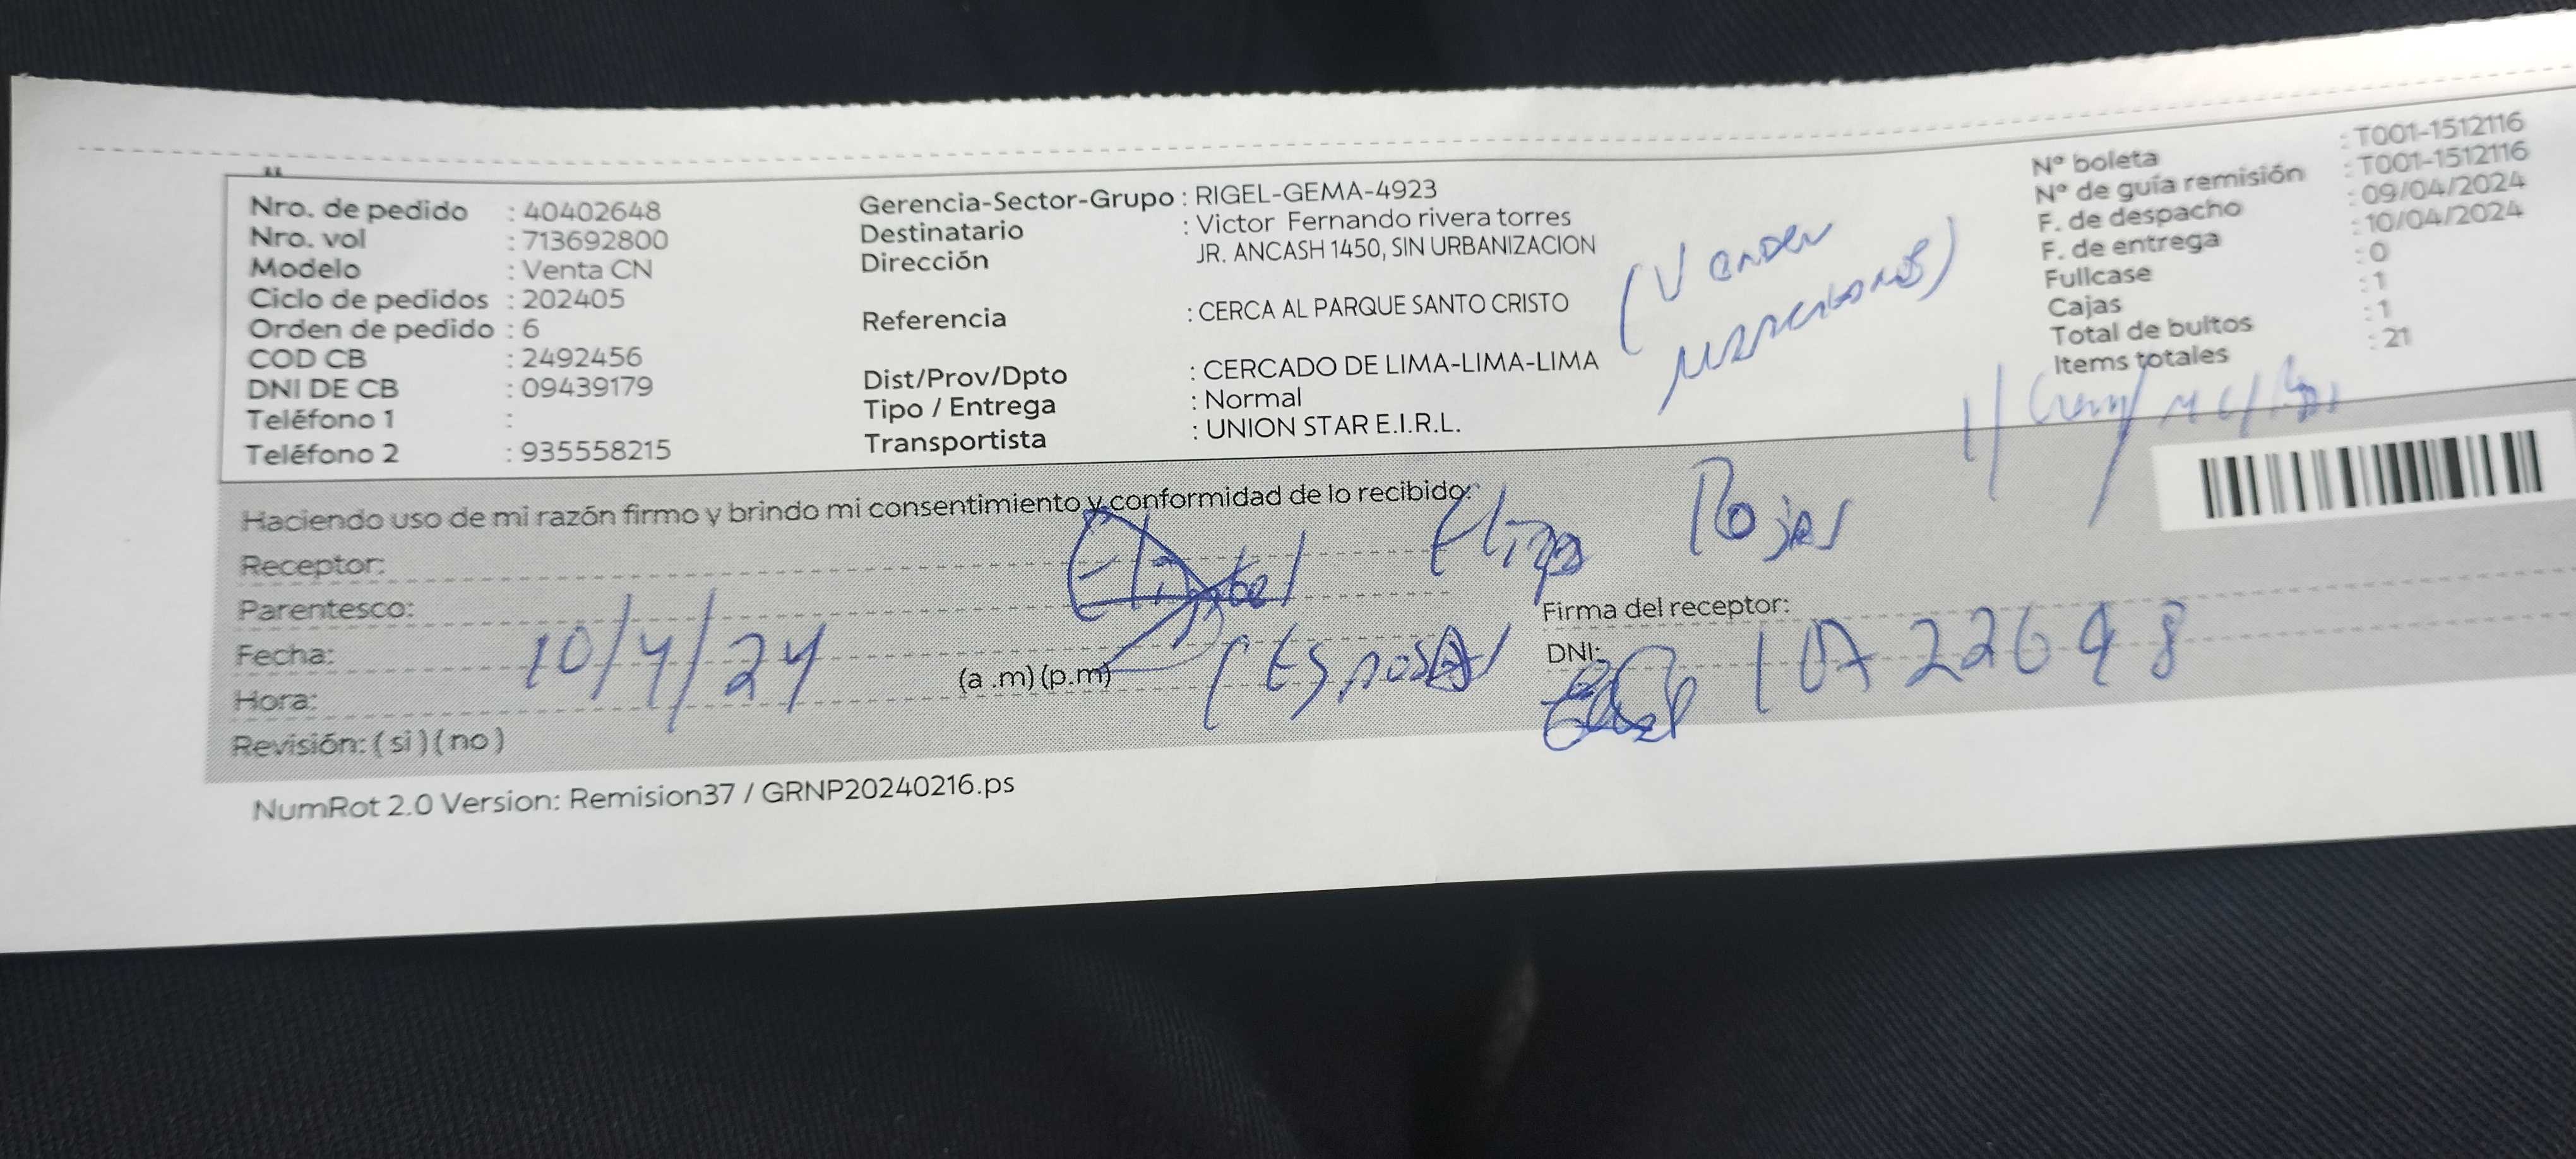 Nro. de pedido : 40402648
Nro. vol : 713692800
Modelo : Venta CN
Ciclo de pedidos : 202405
Orden de pedido : 6
COD CB : 2492456
DNI DE CB : 09439179
Teléfono 1 :
Teléfono 2 : 935558215
Gerencia-Sector-Grupo : RIGEL-GEMA-4923
Destinatario : Victor Fernando rivera torres
Dirección JR. ANCASH 1450, SIN URBANIZACION
Referencia : CERCA AL PARQUE SANTO CRISTO
Dist/Prov/Dpto : CERCADO DE LIMA-LIMA-LIMA
Tipo / Entrega : Normal
Transportista : UNION STAR E.I.R.L.
Nº boleta : T001-1512116
Nº de guía remisión : T001-1512116
F. de despacho : 09/04/2024
F. de entrega : 10/04/2024
Fullcase : 0
Cajas : 1
Total de bultos : 1
Items totales : 21
Haciendo uso de mi razón firmo y brindo mi consentimiento y conformidad de lo recibido:
Receptor: Rojas
Parentesco:
Fecha: 10/4/24
Hora: (a .m) (p.m) (Esposa)
Revisión: ( si ) ( no )
Firma del receptor:
DNI: 10722698
NumRot 2.0 Version: Remision37 / GRNP20240216.ps